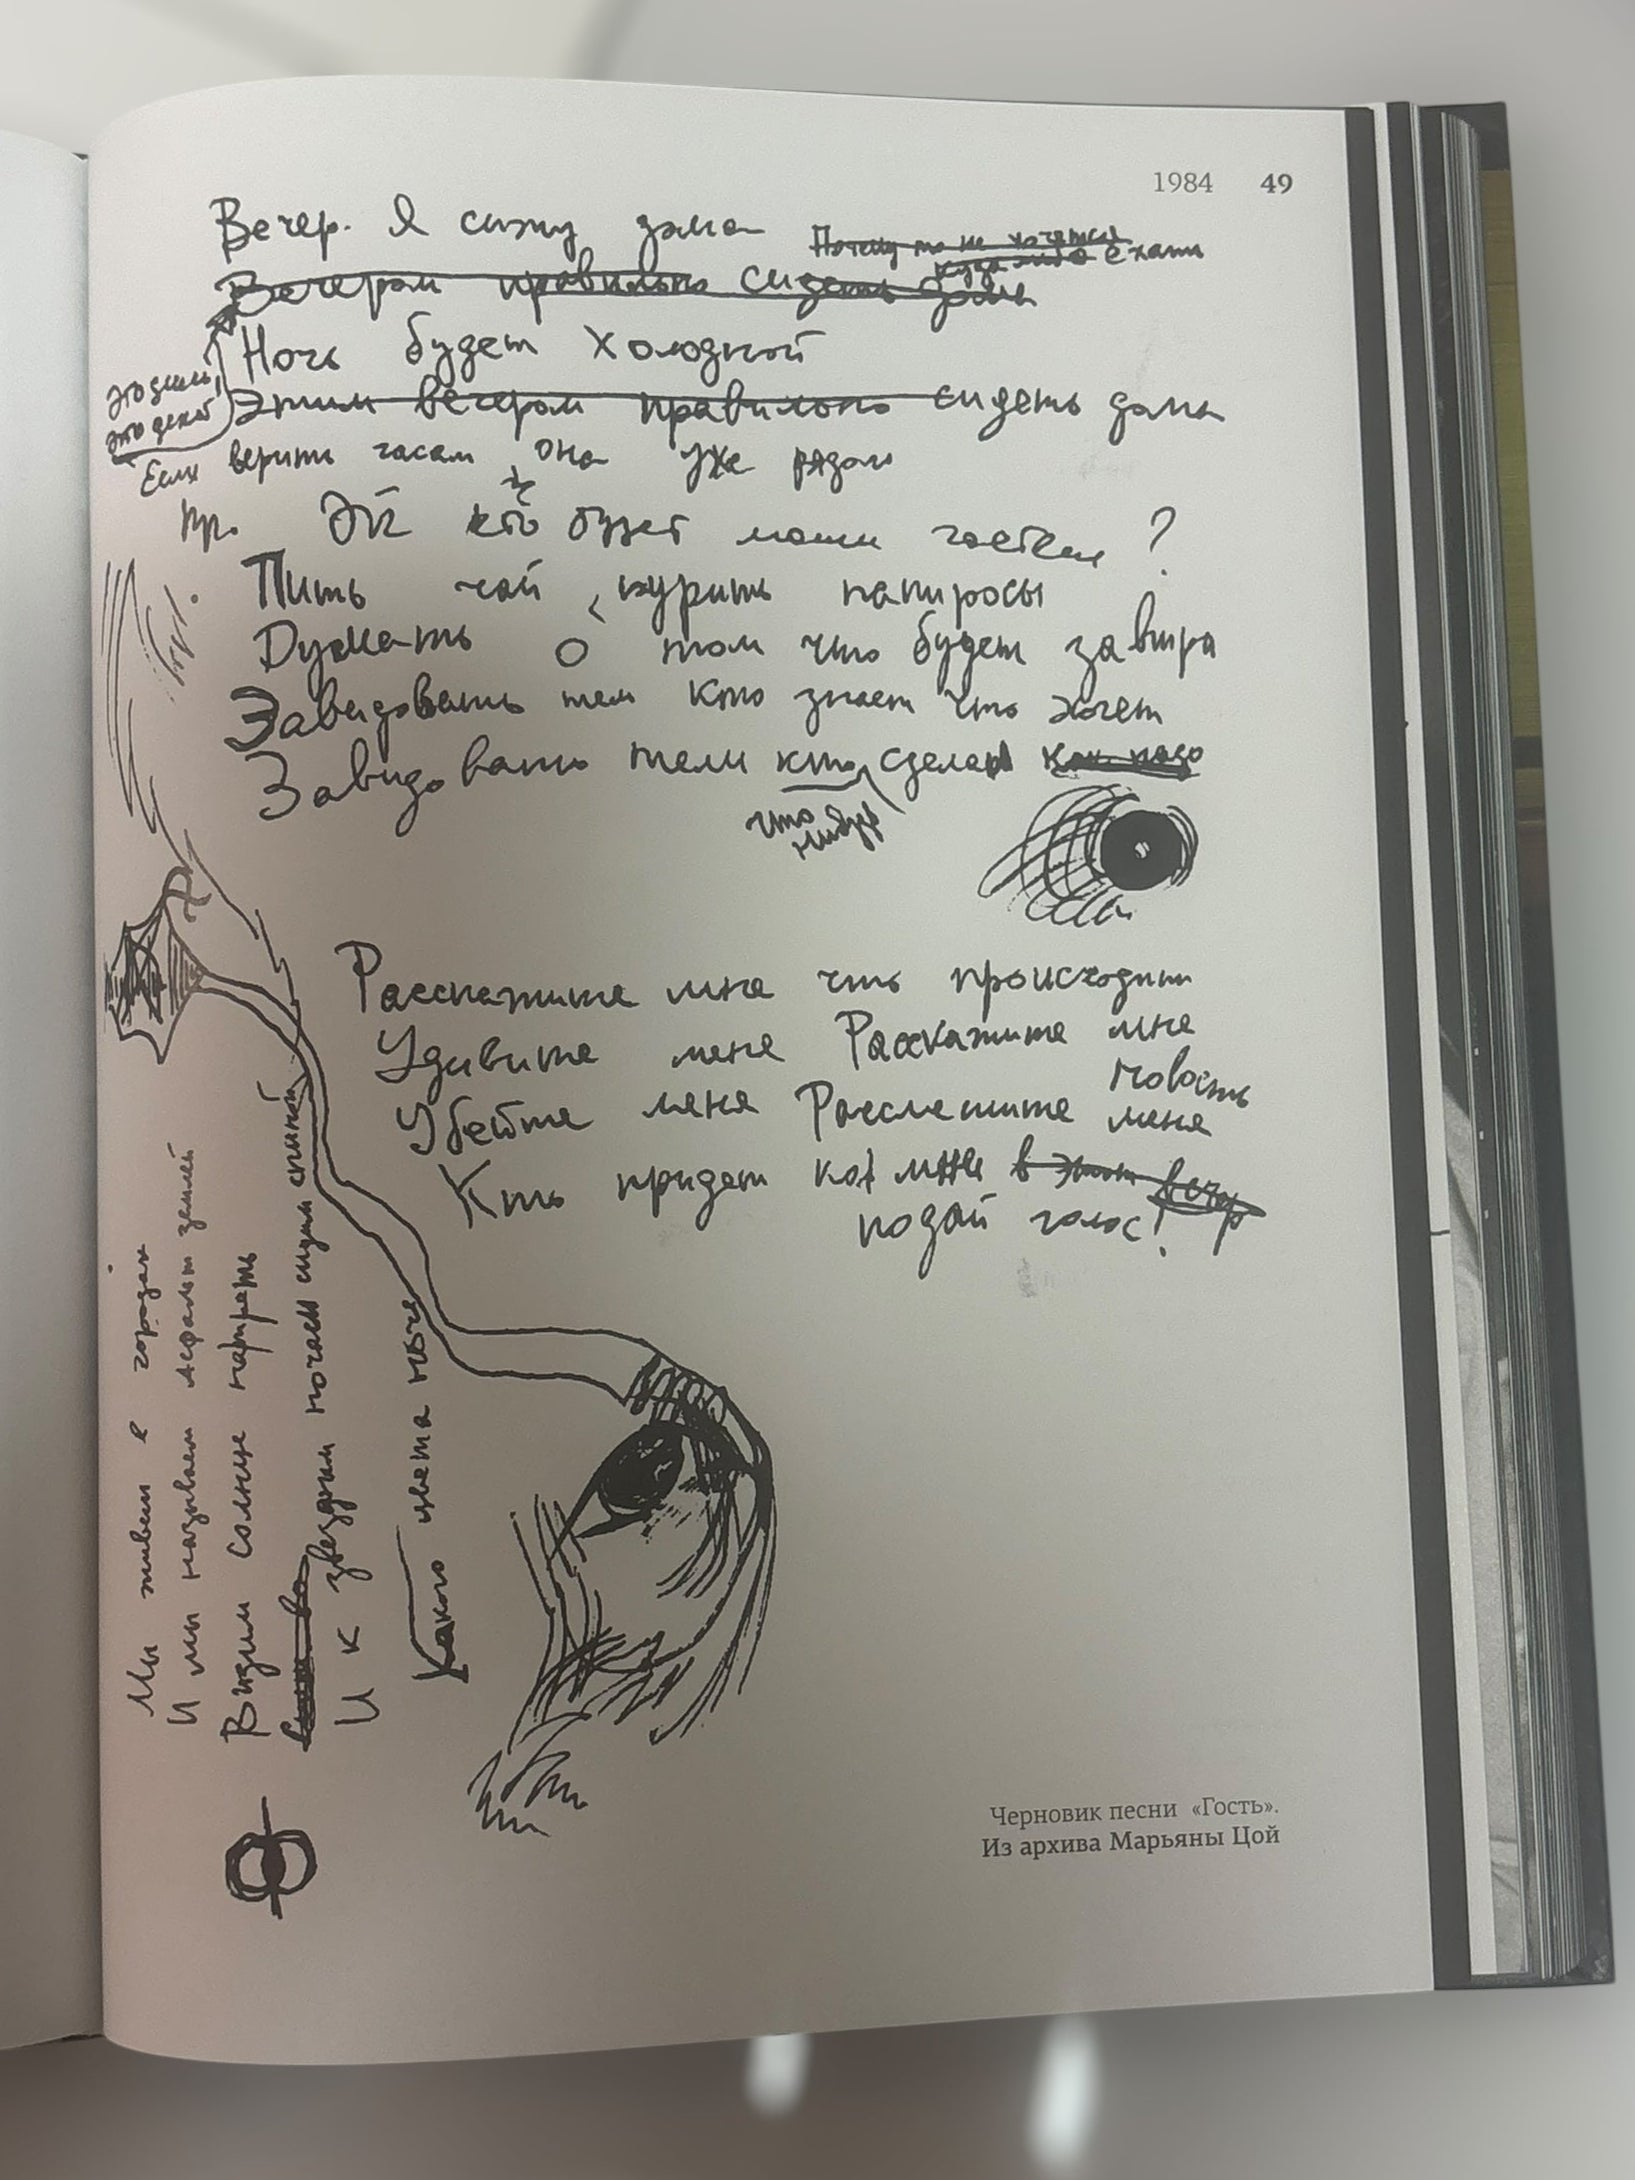 1984 49
Вечер. Я сижу дома
Почему то не хочется
куда либо ехать
Вечером правильно сидеть дома
Ночь будет холодной
Это зима,
это декаб
Этим вечером правильно сидеть дома
Если верить часам, она уже рядом
Пр. Эй кто будет моим гостем?
Пить чай, курить папиросы
Думать о том что будет завтра
Завидовать тем кто знает что хочет
Завидовать тем кто сделал как надо
что
нибудь
Расскажите мне что происходит
Удивите меня Расскажите мне
новость
Убейте меня Рассмешите меня
Кто придет ко мне в этот вечер
подай голос!
Мы живем в городах
И мы называем асфальт землей
Видим солнце напрять
И к звездным ночам сидим спиной
Какого цвета ночь
Черновик песни «Гость».
Из архива Марьяны Цой